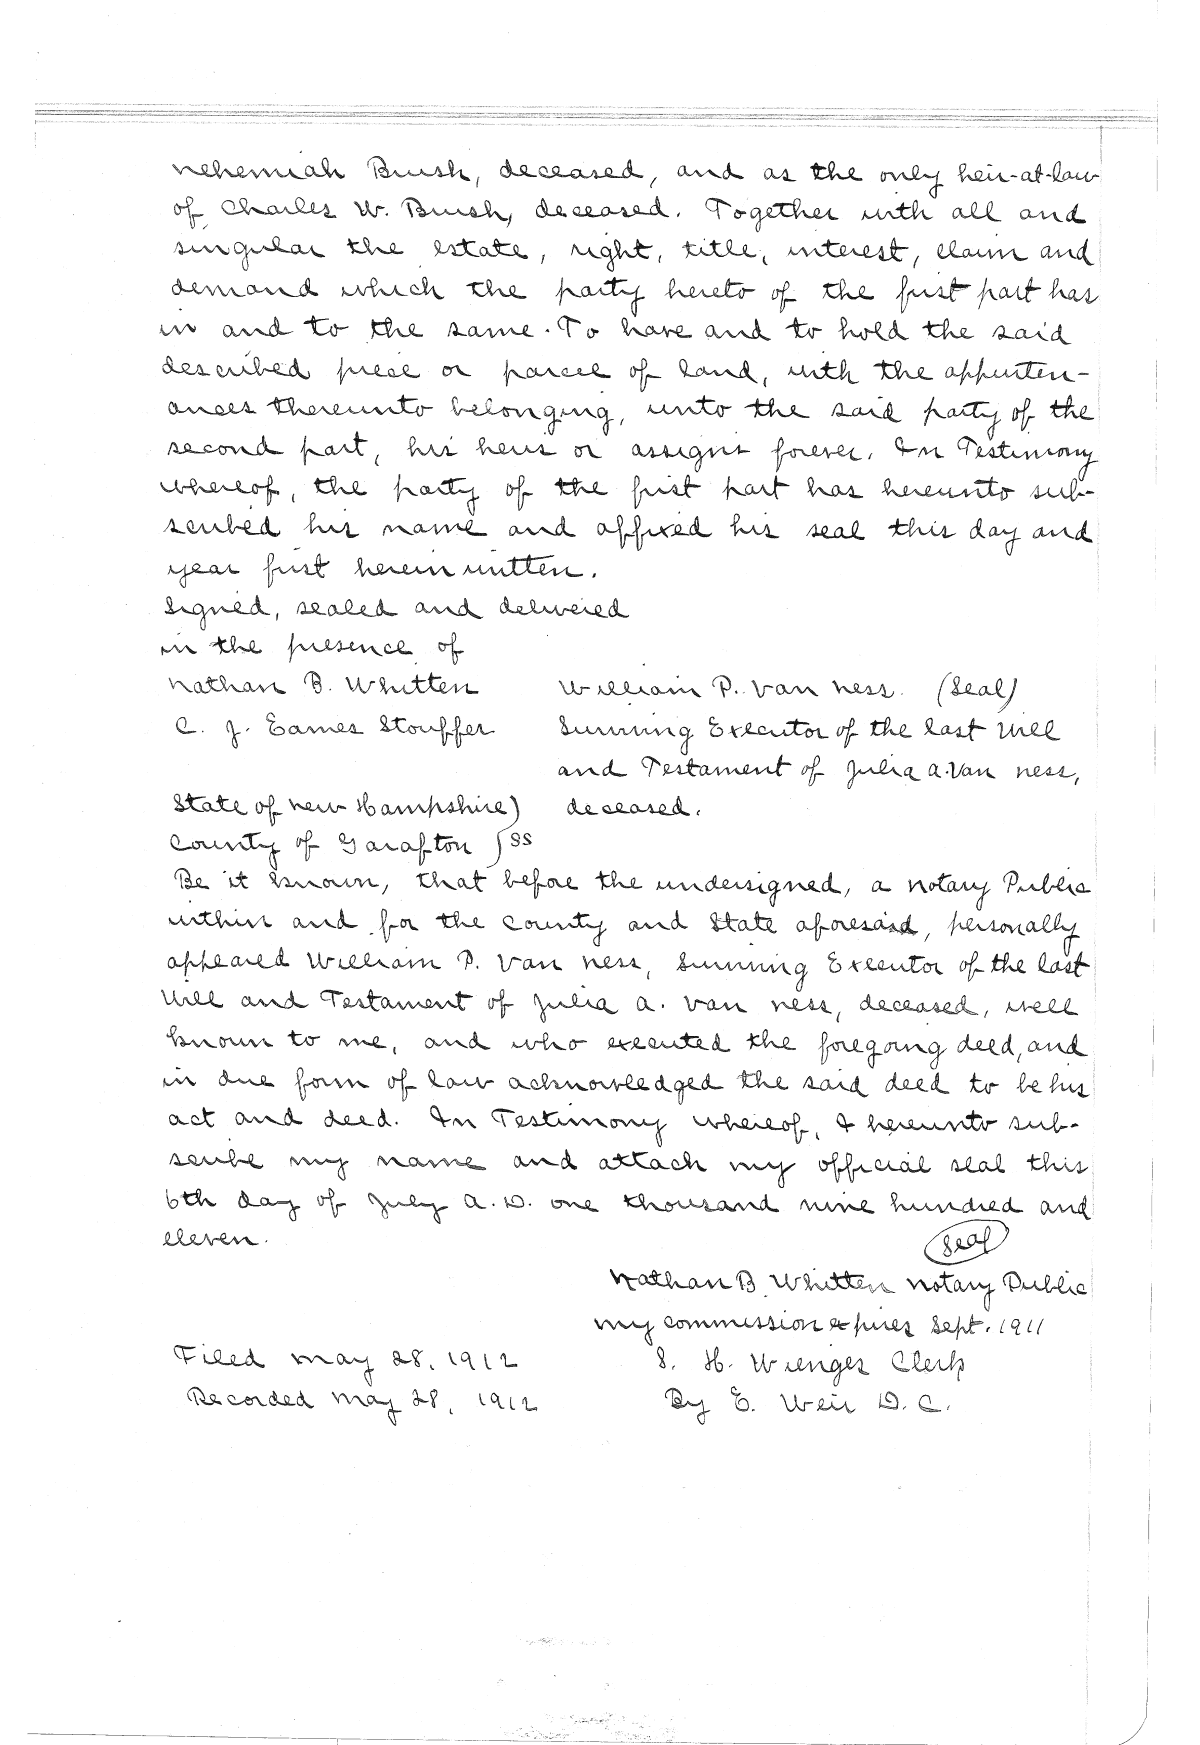 Nehemiah Brush, deceased, and as the only heir-at-law
of Charles W. Brush, deceased. Together with all and
singular the estate, right, title, interest, claim and
demand which the party hereto of the first part has
in and to the same. To have and to hold the said
described piece or parcel of land, with the appurten-
ances thereunto belonging, unto the said party of the
second part, his heirs or assigns forever. In Testimony
whereof, the party of the first part has hereunto sub-
scribed his name and affixed his seal this day and
year first herein written.
Signed, sealed and delivered
in the presence of
Nathan B. Whitten William P. Van Ness. (Seal)
C. J. Eames Stouffer Surviving Executor of the last Will
and Testament of Julia A. Van Ness,
State of New Hampshire) deceased.
County of Garafton )ss
Be it known, that before the undersigned, a Notary Public
within and for the County and State aforesaid, personally
appeared William P. Van Ness, Surviving Executor of the last
Will and Testament of Julia A. Van Ness, deceased, well
known to me, and who executed the foregoing deed, and
in due form of law acknowledged the said deed to be his
act and deed. In Testimony whereof, I hereunto sub-
scribe my name and attach my official seal this
6th day of July A.D. one thousand nine hundred and
eleven. Seal
Nathan B. Whitten Notary Public
My commission expires Sept. 1911
Filed May 28, 1912 S. H. Wenger Clerk
Recorded May 28, 1912 By E. Weir D.C.